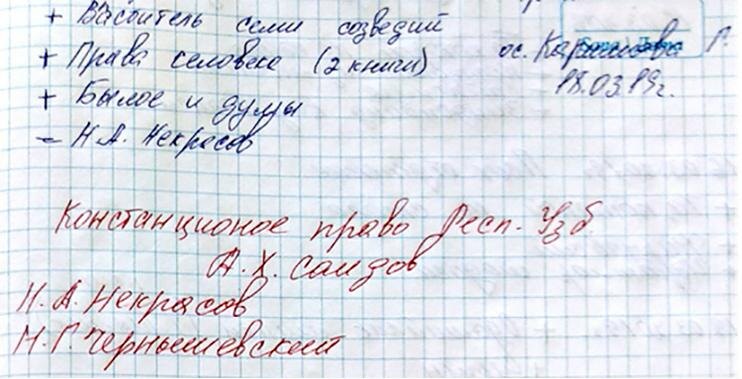 + Васоитель семи созведий
+ Права человека (2 книги)
+ Былое и думы
– Н.А. Некрасов
ос. Каримова Г.
18.03.19г.
Констанционое право Респ. Узб.
А.Х. Саидов
Н.А. Некрасов
Н.Г. Чернышевский